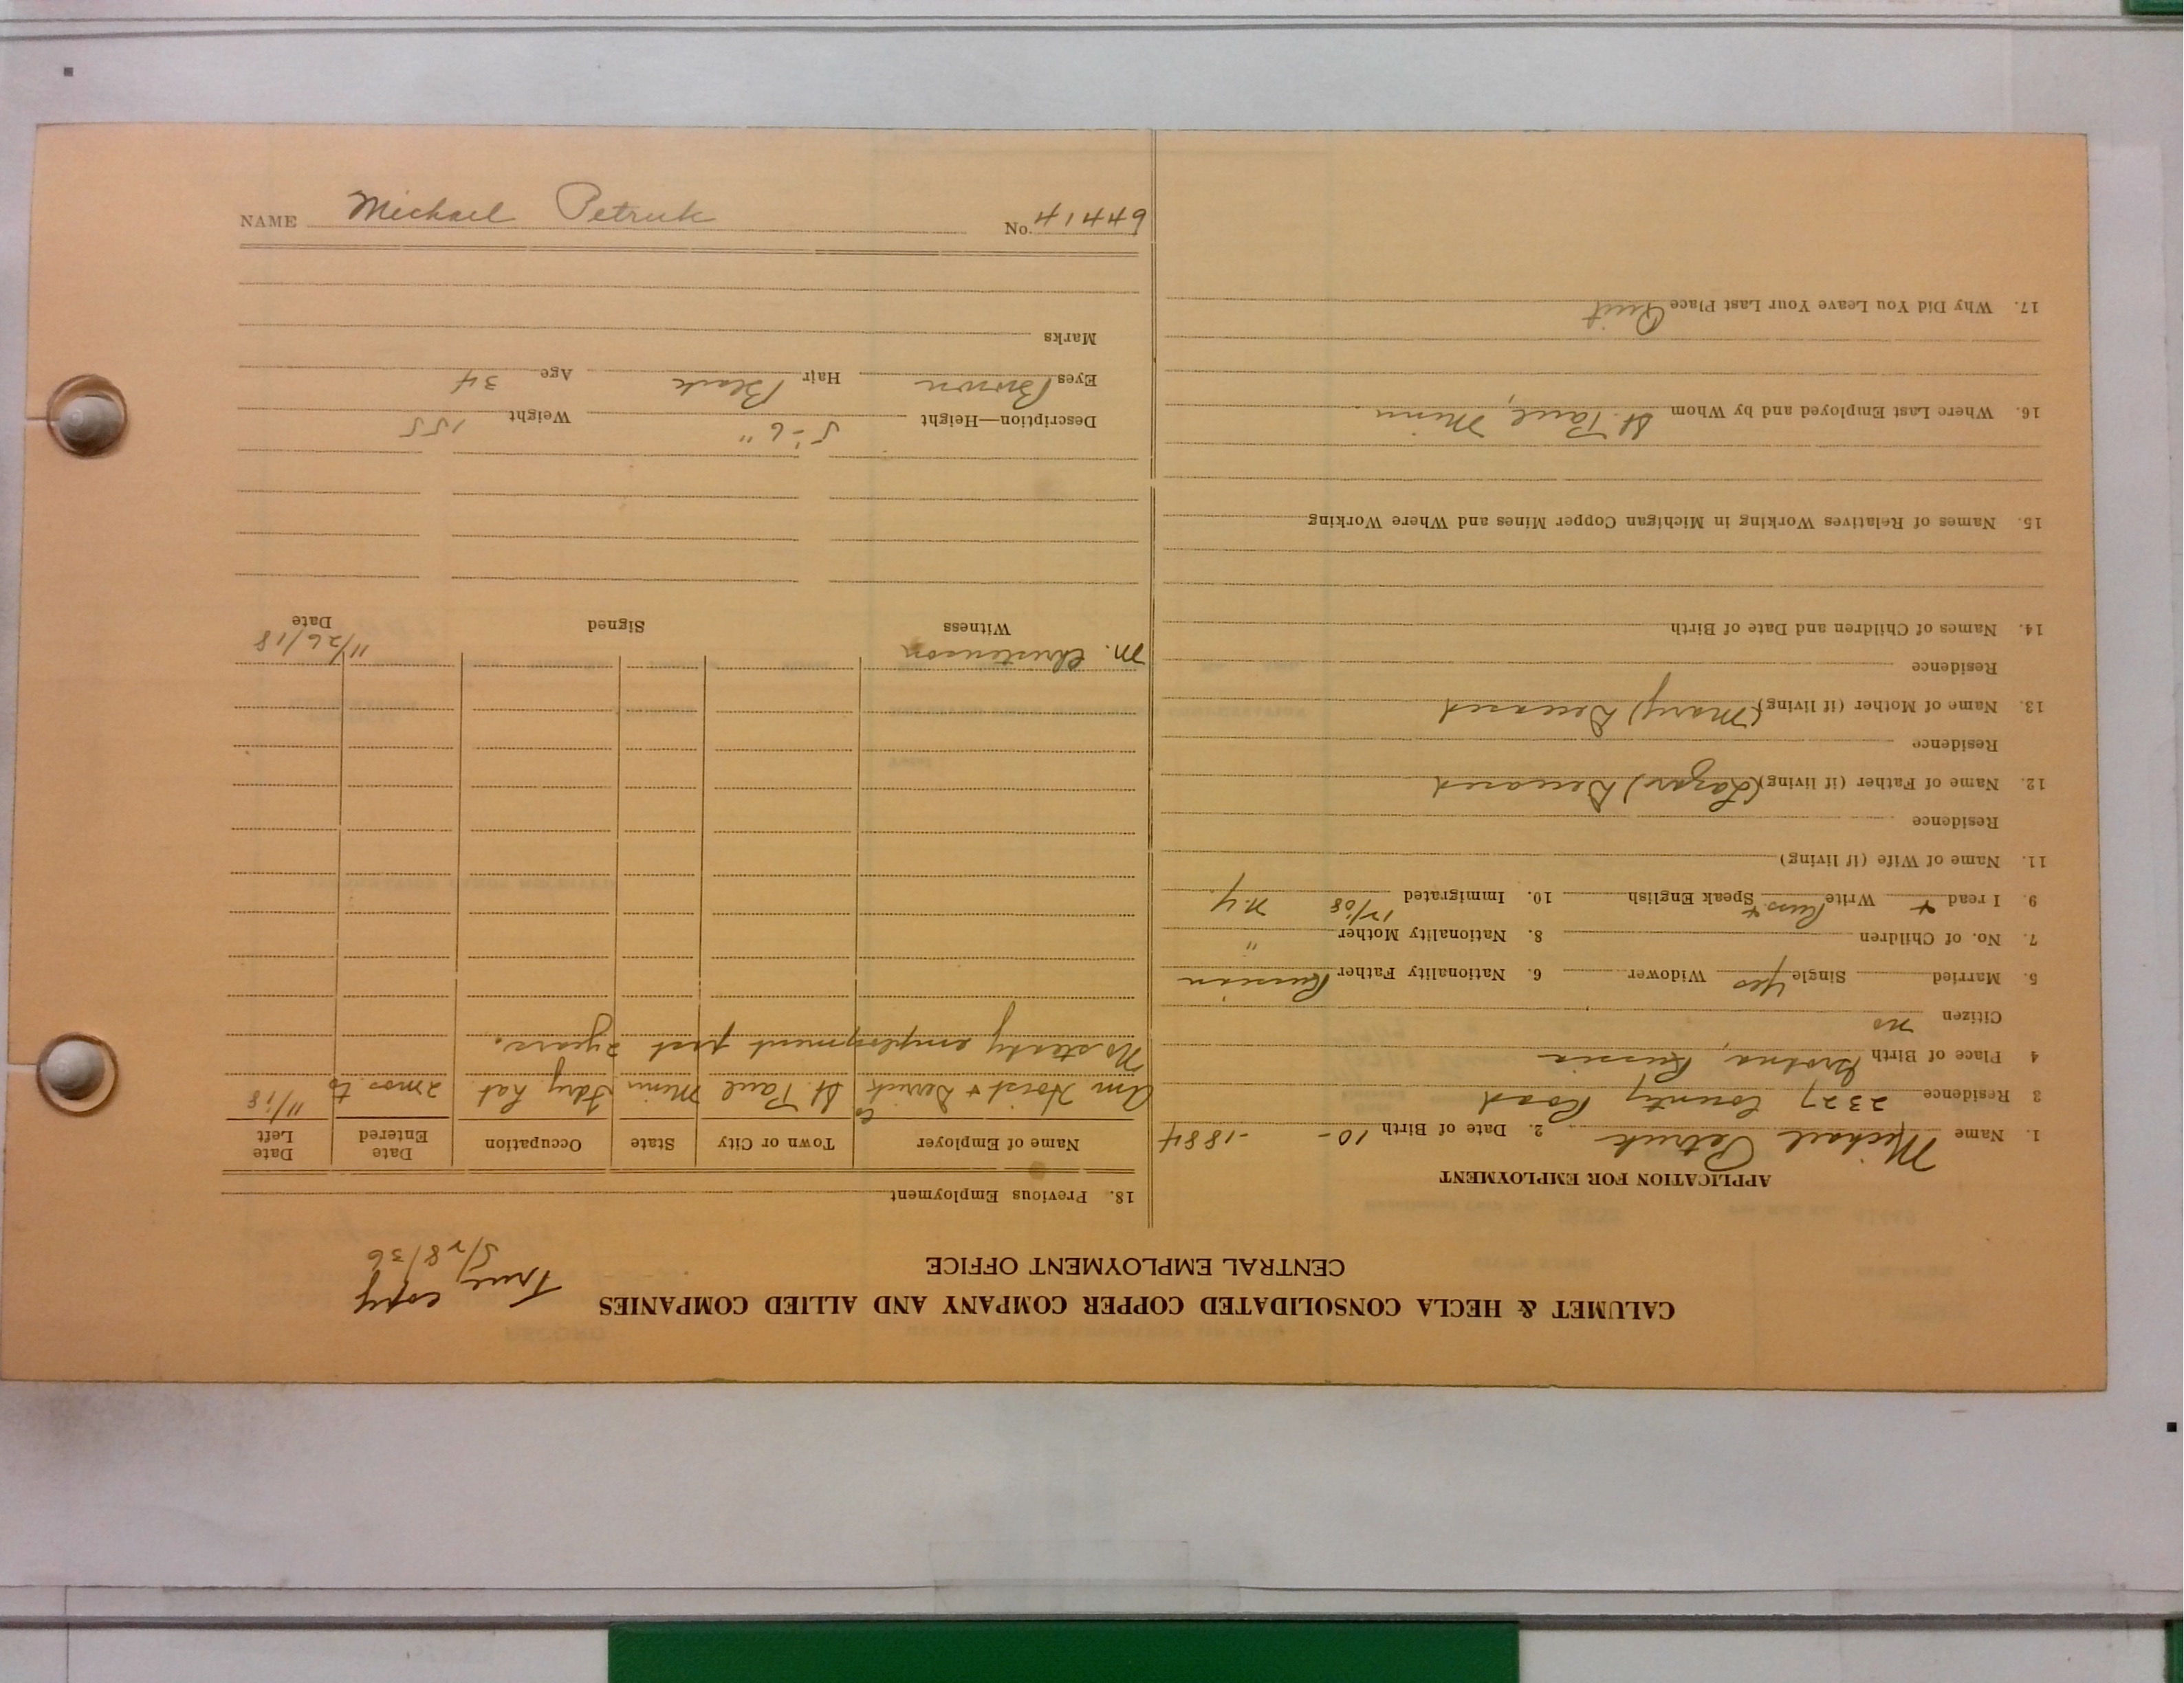 CALUMET & HECLA CONSOLIDATED COPPER COMPANY AND ALLIED COMPANIES
CENTRAL EMPLOYMENT OFFICE
True copy
5/28/36
APPLICATION FOR EMPLOYMENT
1. Name Michael Petruk 2. Date of Birth 10- -1884
3 Residence 2327 County Road
4 Place of Birth Grodno, Russia
Citizen no
5. Married Single yes Widower 6. Nationality Father Russian
7. No. of Children 8. Nationality Mother "
9. I read + Write Russ + Speak English 10. Immigrated 12/08 N.Y.
11. Name of Wife (if living)
Residence
12. Name of Father (if living) (Lazar) Deceased
Residence
13. Name of Mother (if living) (Mary) Deceased
Residence
14. Names of Children and Date of Birth
15. Names of Relatives Working in Michigan Copper Mines and Where Working
16. Where Last Employed and by Whom St. Paul, Minn.
17. Why Did You Leave Your Last Place Quit
18. Previous Employment
Name of Employer Town or City State Occupation Date Entered Date Left
Am Hoist + Derrick Co St. Paul Minn Fdry Lab. 2 mos. to 11/18
No steady employment past 2 years.
M. Christenson 11/26/18
Witness Signed Date
Description—Height 5'-6" Weight 155
Eyes Brown Hair Black Age 34
Marks
NAME Michael Petruk No. 41449